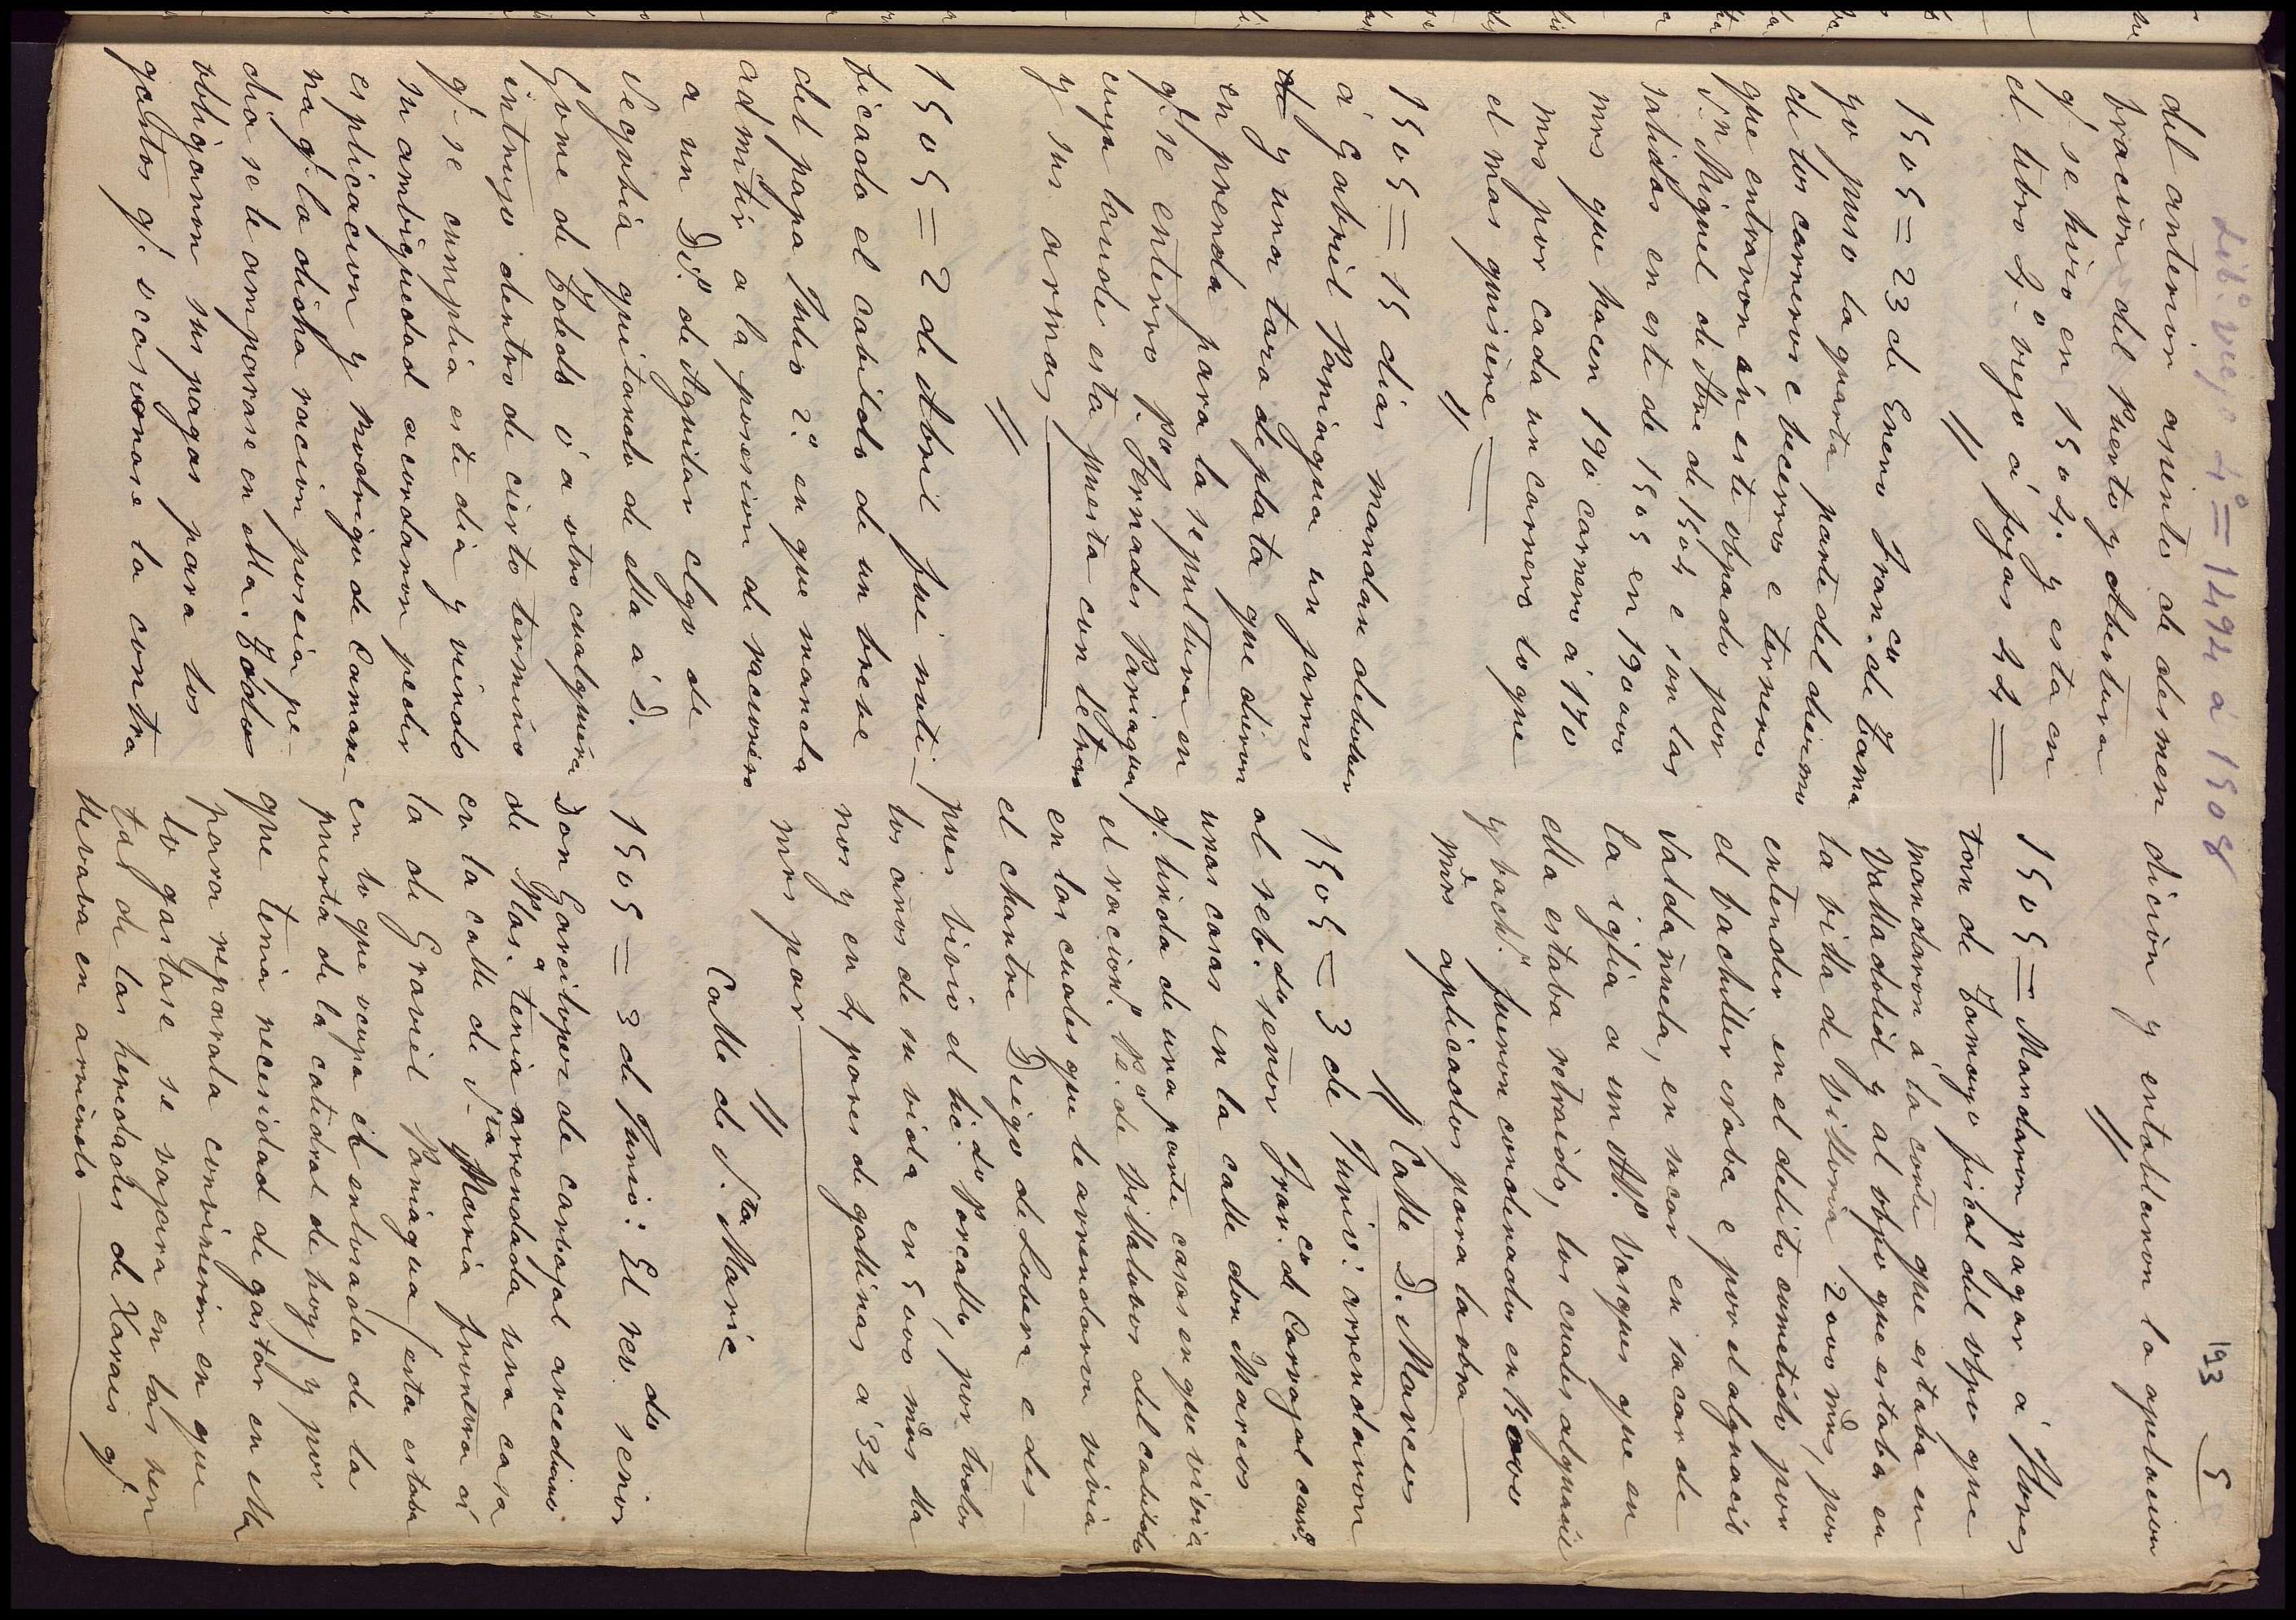 Lib.º viejo 4º = 1494 á 1508
193
5
del anterior asiento de desmen
bracion del Puerto y Abertura
q.e se hizo en 1504. y esta en
el libro 4.º viejo á fojas 44 =
//
1505 = 23 de Enero Fran.co de Tama
yo puso la quarta parte del diezmo
de los carneros e becerros e ternero
que entraron en este obpado por
S.n Miguel de Stre de 1504 e son las
salidas en este de 1505 en 19000
mrs que hacen 190 carneros á 170
mrs por cada un carnero lo que
el mas quisiere =
//
1505 = 15 dias mandan debolber
á Gabriel Paniagua un jarro
y una taza de plata que dieron
en prenda para la sepultura en
q.e se enterro P.o Hernades Paniagua
cuya lauude esta puesta con letras
y sus armas
//
1505 = 2 de Abril fue noti-
ficado el cabildo de un breve
del papa Julio 2.º en que manda
admitir a la posesion de racionero
a un D.º de Aguilar clgo de
Segobia quitando de ella á D.
Gome de Toledo ó a otro cualquiera
intruso dentro de cierto termino
q.e se cumplia este dia y viendo
su ambiguedad acordaron pedir
esplicacion y Rodrigo de Camare-
na q.e la dicha racion poseia pe-
dia se le amparase en ella. Todos
obligaron sus pagas para los
gastos q.e ocasionase la contra
dicion y entablaron la apelacion
//
1505 = Mandaron pagar á Flores
tan de Tamayo fiscal del obpo que
mandaron á la corte que estaba en
Valladolid y al obpo que estaba en
la villa de Villoria 2000 mrs, por
entender en el delito cometido por
el bachiller Naba e por el alguacil
Valdañuela, en sacar en sacar de
la iglia a un Al.º Vasques que en
ella estaba retraido, los cuales alguacil
y bach.r fueron condenados en 15000
mrs aplicados para la obra
// Calle D. Marcos
1505 = 3 de Junio: arrendaron
al reb.do señor Fran.co de Carvajal can.º
unas casas en la calle don Marcos
q.e linda de una parte casas en que vivia
el racion.º P.º de Villalobos del cabildo
en las cuales que le arrendaron vivia
el chantre Diego de Lobera e des-
pues vivio el lic.do Porcallo, por todos
los años de su vida en 5000 mrs lla
nos y en 4 pares de gallinas á 34
mrs par
//
Calle de S.ta Maria
1505 = 3 de Junio: El rev.do señor
Don Garcilopez de carbajal arcediano
de Plas.a tenia arrendada una casa
en la calle de S.ta Maria frontera á
la de Graviel Paniagua (esta estaba
en lo que ocupa el enlosado de la
puerta de la catedral de hoy) y por
que tenia necesidad de gastar en ella
para repararla convinieron en que
lo gastase se vajara en las ren
tas de las heredades de Xarais q.e
llevaba en arriendo